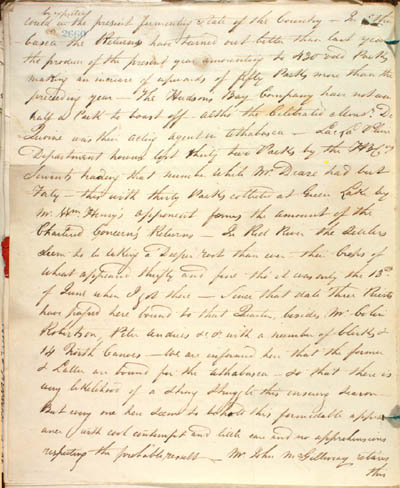 by expecting
could in the present fermenting state of the Country — In Atha
2660
basca the Returns have turned out better than last year
the produce of the present year amounting to 430 odd Packs
making an increase of upwards of fifty Packs more than the
preceding year — The Hudsons Bay Company have not even
half a Pack to boast off. altho the Celebrated Mons.r De
was their acting agent in Athabasca —
Department however lost thirty two Packs by the
Servants trading that number while Mr Dease had but
Forty — this with thirty Packs collected at Green Lake by
Mr. Wm Henry's opponent forms the amount of the
Chartered Concerns Returns — In Red River the Settlers
seem to be taking a Deeper root than ever — their Crops of
Wheat appeared thrifty and fine tho it was only the 13th
of June when I got there — Since that date three
have passed here bound to that Quarter, besides Mr Colin
Robertson, Peter Andries &c &c with a number of Clerks &
14 North Canoes — We are informed here that the former
& Latter are bound for the Athabasca — so that there is
every likelihood of a strong struggle this ensuing season —
But every one here seems to behold this formidable appear
ance (with cool contempt and little care and no apprehensions
respecting the probable result — Mr John McGillivray retains
this